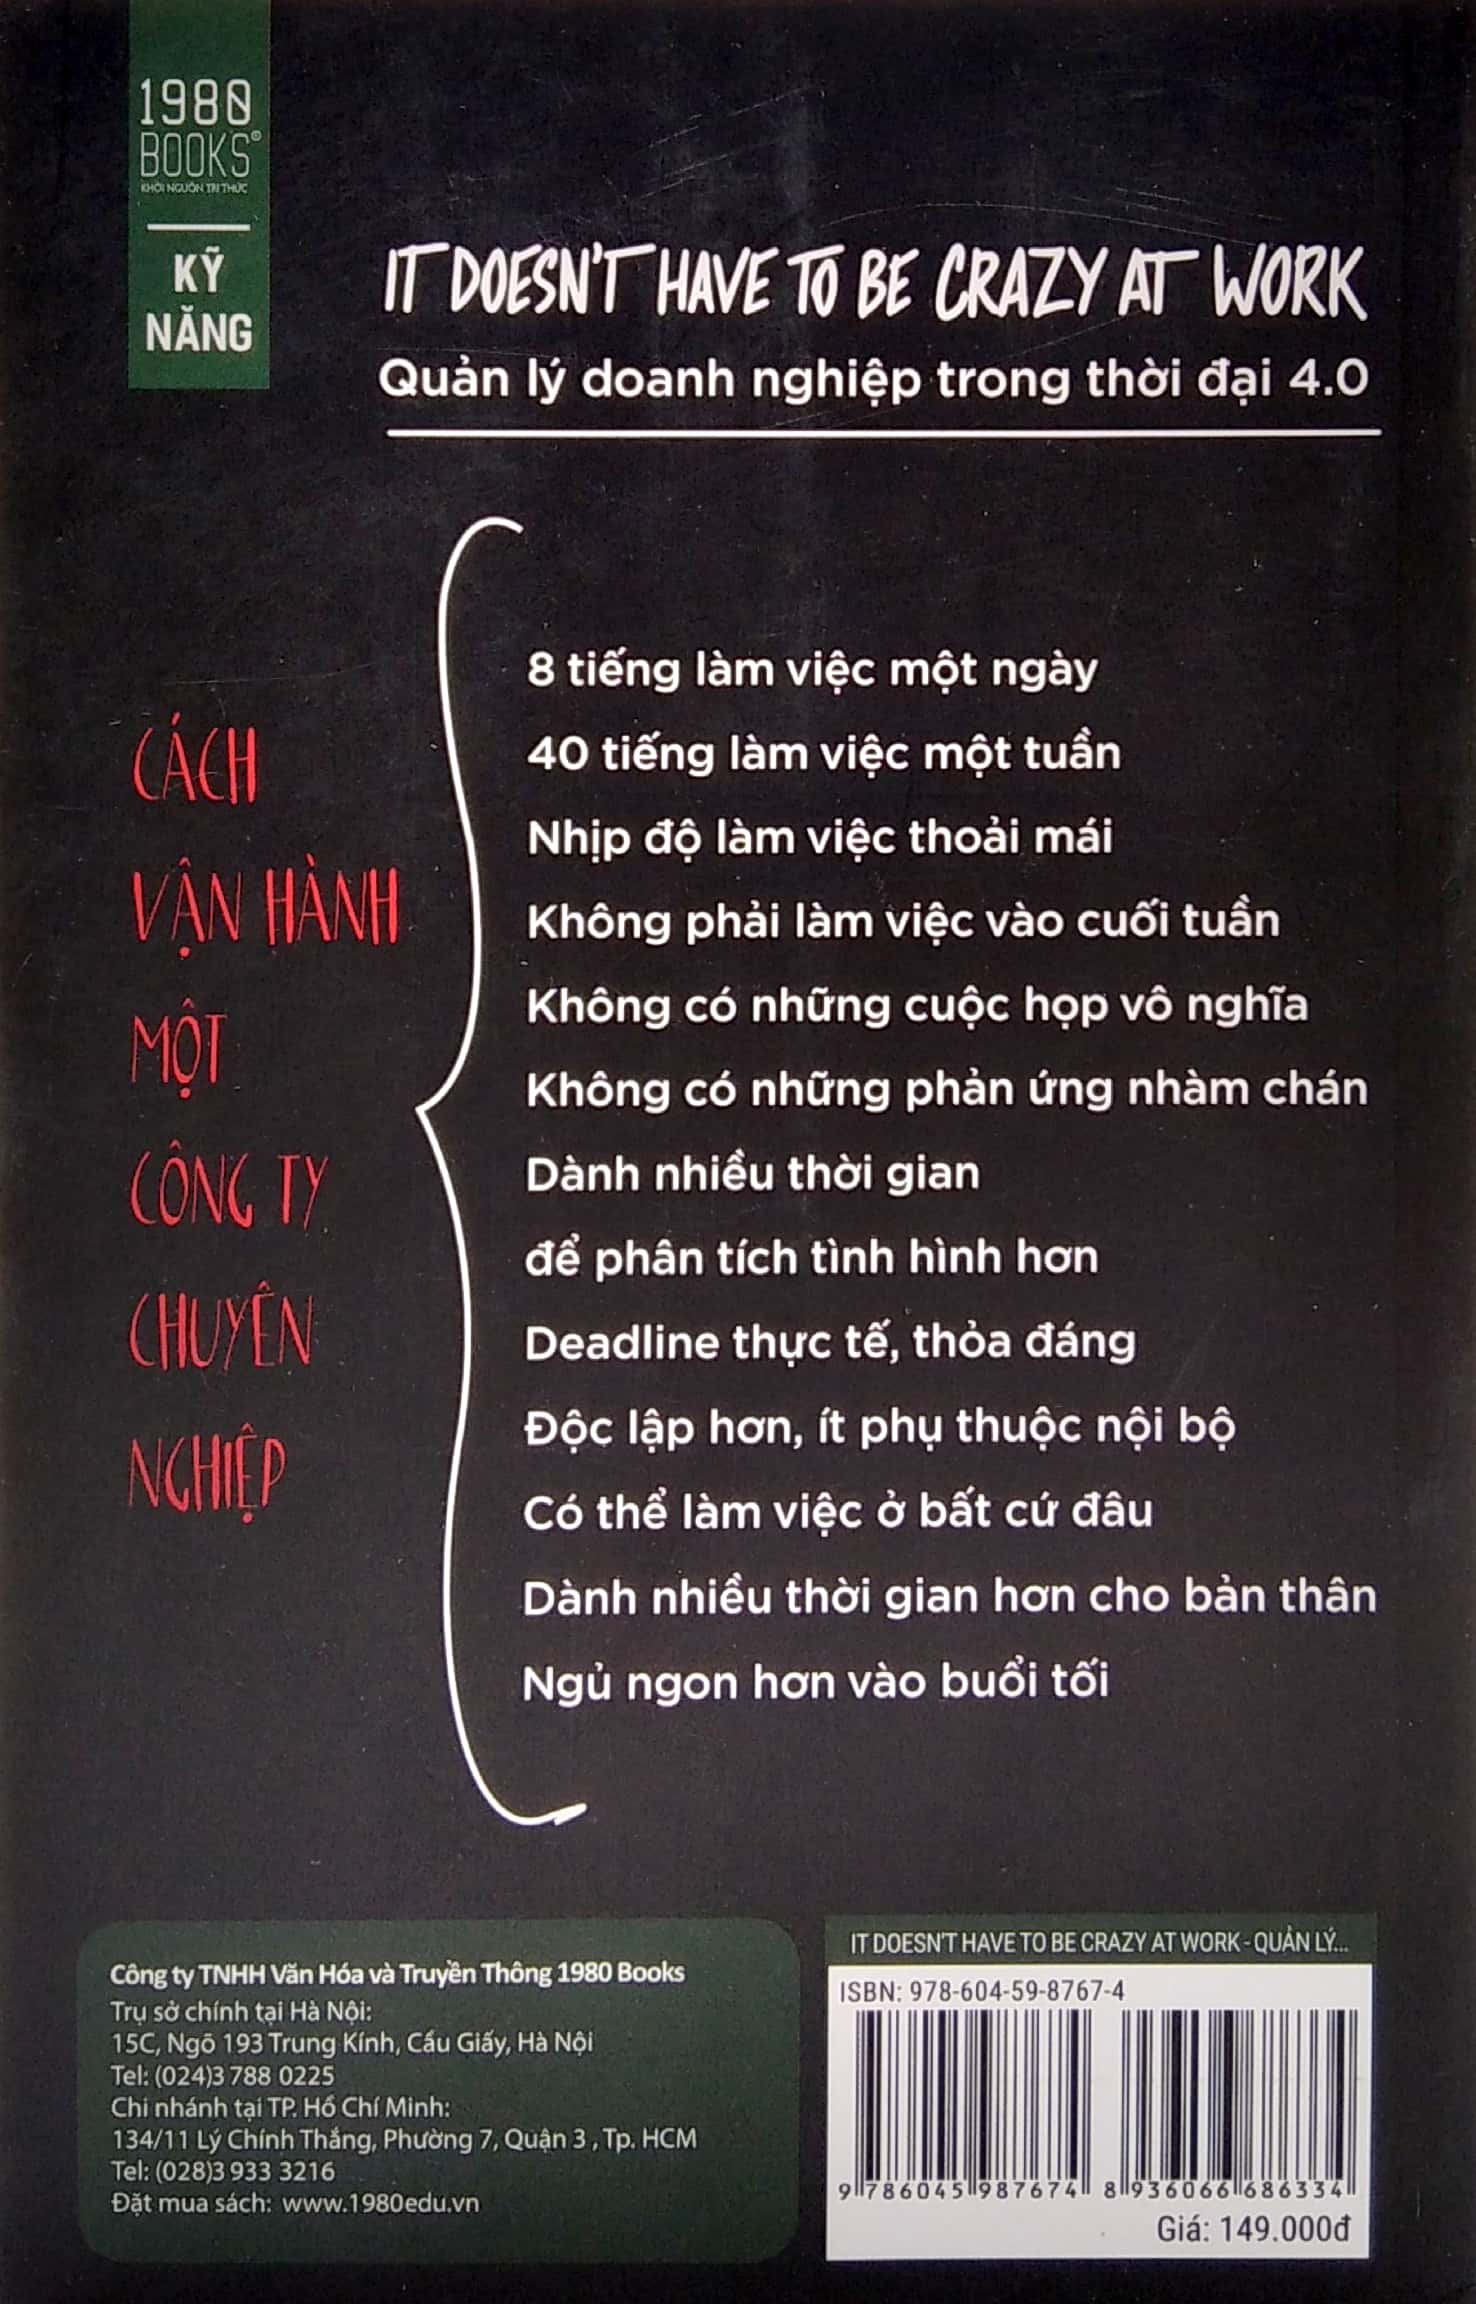 1980
BOOKS®
KHƠI NGUỒN TRI THỨC
KỸ
NĂNG
IT DOESN'T HAVE TO BE CRAZY AT WORK
Quản lý doanh nghiệp trong thời đại 4.0
CÁCH
VẬN HÀNH
MỘT
CÔNG TY
CHUYÊN
NGHIỆP
8 tiếng làm việc một ngày
40 tiếng làm việc một tuần
Nhịp độ làm việc thoải mái
Không phải làm việc vào cuối tuần
Không có những cuộc họp vô nghĩa
Không có những phản ứng nhàm chán
Dành nhiều thời gian
để phân tích tình hình hơn
Deadline thực tế, thỏa đáng
Độc lập hơn, ít phụ thuộc nội bộ
Có thể làm việc ở bất cứ đâu
Dành nhiều thời gian hơn cho bản thân
Ngủ ngon hơn vào buổi tối
Công ty TNHH Văn Hóa và Truyền Thông 1980 Books
Trụ sở chính tại Hà Nội:
15C, Ngõ 193 Trung Kính, Cầu Giấy, Hà Nội
Tel: (024)3 788 0225
Chi nhánh tại TP. Hồ Chí Minh:
134/11 Lý Chính Thắng, Phường 7, Quận 3 , Tp. HCM
Tel: (028)3 933 3216
Đặt mua sách: www.1980edu.vn
IT DOESN'T HAVE TO BE CRAZY AT WORK - QUẢN LÝ...
ISBN: 978-604-59-8767-4
9 786045 987674 8 936066 686334
Giá: 149.000đ